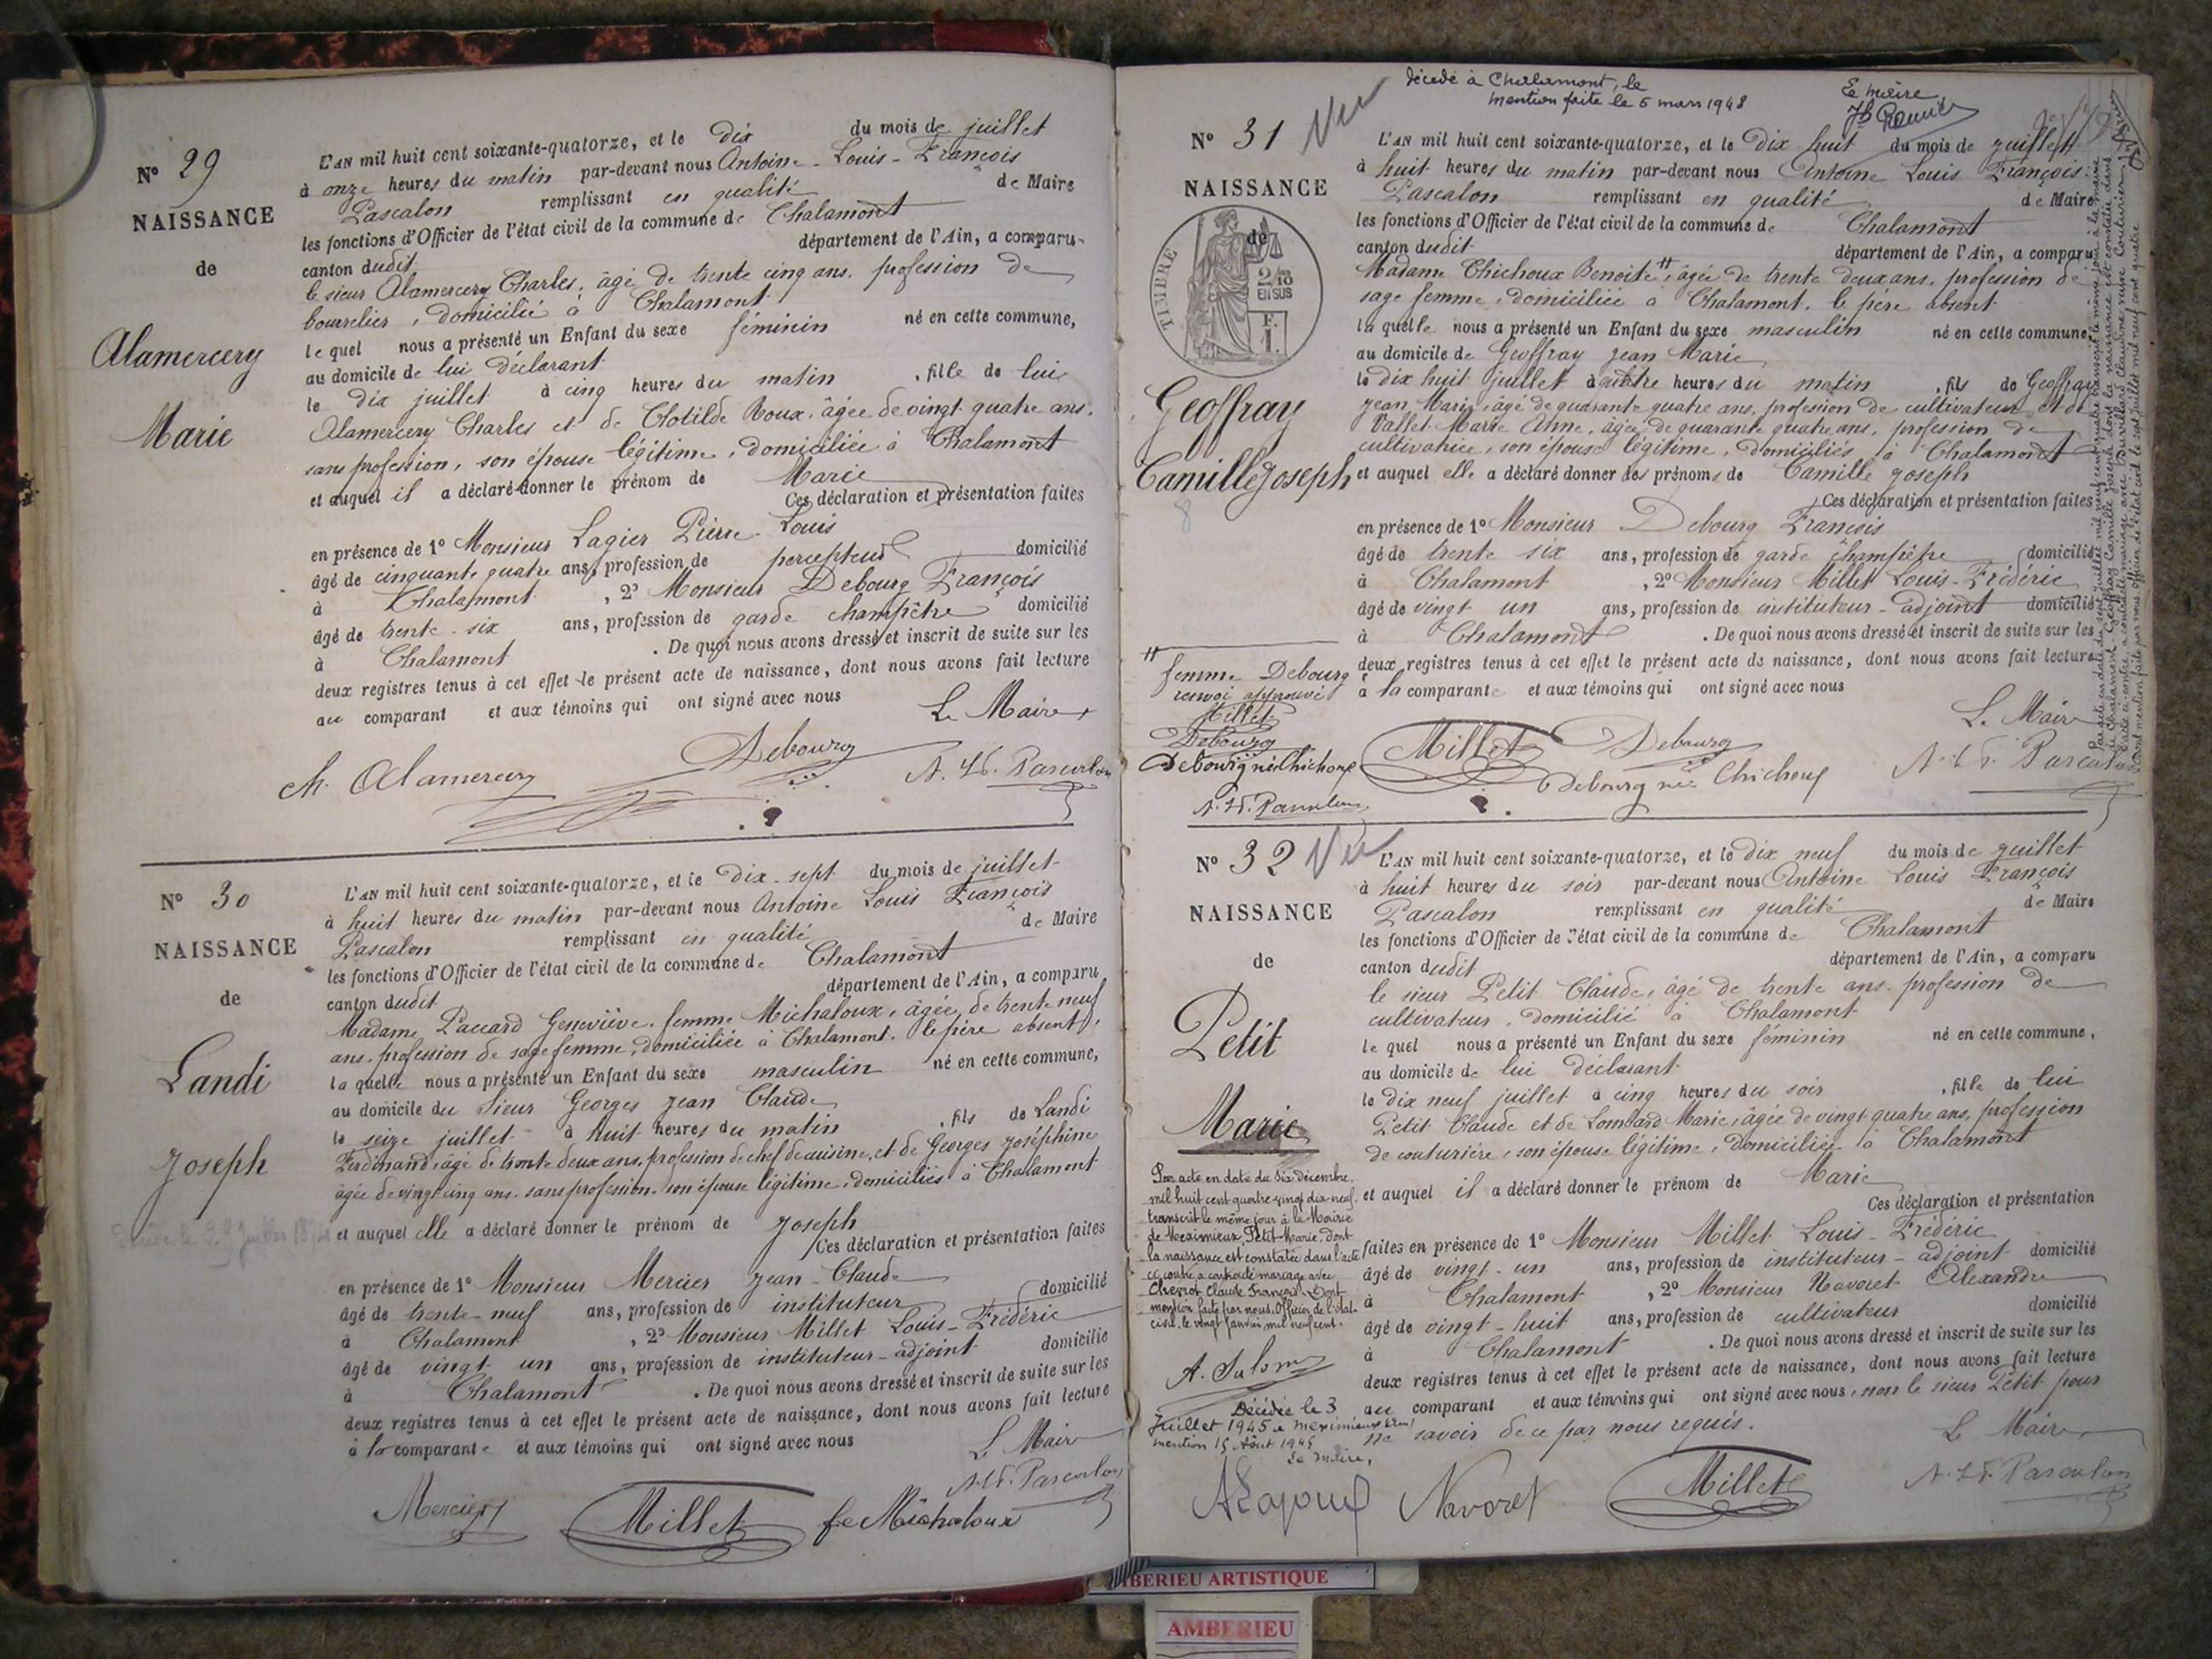 N° 29
NAISSANCE
de
Alamercery
Marie
L'AN mil huit cent soixante-quatorze, et le Dix du mois de juillet
à onze heures du matin par-devant nous Antoine-Louis-François
Pascalon remplissant en qualité de Maire
les fonctions d'Officier de l'état civil de la commune de Chalamont
canton dudit département de l'Ain, a comparu
le sieur Alamercery Charles, âgé de trente cinq ans, profession de
bourrelier, domicilié à Chalamont
lequel nous a présenté un Enfant du sexe féminin né en cette commune,
au domicile de lui déclarant
le dix juillet à cinq heures du matin, fille de lui
Alamercery Charles et de Clotilde Roux, âgée de vingt quatre ans,
sans profession, son épouse légitime, domiciliée à Chalamont
et auquel il a déclaré donner le prénom de Marie
Ces déclaration et présentation faites
en présence de 1° Monsieur Lagier Pierre-Louis
âgé de cinquante quatre ans, profession de percepteur domicilié
à Chalamont, 2° Monsieur Debourg François
âgé de trente-six ans, profession de garde champêtre domicilié
à Chalamont. De quoi nous avons dressé et inscrit de suite sur les
deux registres tenus à cet effet le présent acte de naissance, dont nous avons fait lecture
au comparant et aux témoins qui ont signé avec nous
Le Maire
Ch. Alamercery Debourg A. Ls. F. Pascalon
N° 30
NAISSANCE
de
Landi
Joseph
L'AN mil huit cent soixante-quatorze, et le Dix-sept du mois de juillet
à huit heures du matin par-devant nous Antoine Louis François
Pascalon remplissant en qualité de Maire
les fonctions d'Officier de l'état civil de la commune de Chalamont
canton dudit département de l'Ain, a comparu
Madame Paccard Geneviève, femme Michaloux, âgée de trente neuf
ans, profession de sage femme, domiciliée à Chalamont, le père absent,
laquelle nous a présenté un Enfant du sexe masculin né en cette commune,
au domicile du Sieur Georges Jean Claude
le seize juillet à huit heures du matin, fils de Landi
Ferdinand, âgé de trente deux ans, profession de chef de cuisine, et de Georges Joséphine
âgée de vingt cinq ans, sans profession, son épouse légitime, domiciliés à Chalamont
et auquel elle a déclaré donner le prénom de Joseph
Ces déclaration et présentation faites
en présence de 1° Monsieur Mercier Jean-Claude
âgé de trente-neuf ans, profession de instituteur domicilié
à Chalamont, 2° Monsieur Millet Louis-Frédéric
âgé de vingt un ans, profession de instituteur-adjoint domicilié
à Chalamont. De quoi nous avons dressé et inscrit de suite sur les
deux registres tenus à cet effet le présent acte de naissance, dont nous avons fait lecture
à la comparante et aux témoins qui ont signé avec nous
Le Maire
A. Ls. F. Pascalon
Mercier Millet fe Michaloux
décédé à Chalamont, le
mention faite le 5 mars 1948
Le Maire
N° 31 Vu
NAISSANCE
de
TIMBRE
2/10
EN SUS
Geoffray
Camille Joseph
8
L'AN mil huit cent soixante-quatorze, et le Dix huit du mois de juillet
à huit heures du matin par-devant nous Antoine Louis François
Pascalon remplissant en qualité de Maire
les fonctions d'Officier de l'état civil de la commune de Chalamont
canton dudit département de l'Ain, a comparu
Madame Chichoux Benoite #, âgée de trente deux ans, profession de
sage femme, domiciliée à Chalamont, le père absent
laquelle nous a présenté un Enfant du sexe masculin né en cette commune,
au domicile de Geoffray Jean Marie
le dix huit juillet à quatre heures du matin, fils de Geoffray
Jean Marie, âgé de quarante quatre ans, profession de cultivateur et de
Vallet Marie Anne, âgée de quarante quatre ans, profession de
cultivatrice, son épouse légitime, domiciliés à Chalamont
et auquel elle a déclaré donner les prénoms de Camille Joseph
Ces déclaration et présentation faites
en présence de 1° Monsieur Debourg François
âgé de trente six ans, profession de garde champêtre domicilié
à Chalamont, 2° Monsieur Millet Louis-Frédéric
âgé de vingt un ans, profession de instituteur-adjoint domicilié
à Chalamont. De quoi nous avons dressé et inscrit de suite sur les
deux registres tenus à cet effet le présent acte de naissance, dont nous avons fait lecture
à la comparante et aux témoins qui ont signé avec nous
# femme Debourg
renvoi approuvé
Millet
Debourg
Debourg née Chichoux
A. Ls. F. Pascalon
Le Maire
Millet Debourg
Debourg née Chichoux
A. Ls. F. Pascalon
N° 32 Vu
NAISSANCE
de
Petit
Marie
L'AN mil huit cent soixante-quatorze, et le Dix neuf du mois de juillet
à huit heures du soir par-devant nous Antoine Louis François
Pascalon remplissant en qualité de Maire
les fonctions d'Officier de l'état civil de la commune de Chalamont
canton dudit département de l'Ain, a comparu
le sieur Petit Claude, âgé de trente ans, profession de
cultivateur, domicilié à Chalamont
lequel nous a présenté un Enfant du sexe féminin né en cette commune,
au domicile de lui déclarant
le dix neuf juillet à cinq heures du soir, fille de lui
Petit Claude et de Lombard Marie, âgée de vingt quatre ans, profession
de couturière, son épouse légitime, domiciliée à Chalamont
et auquel il a déclaré donner le prénom de Marie
Ces déclaration et présentation
faites en présence de 1° Monsieur Millet Louis-Frédéric
âgé de vingt-un ans, profession de instituteur-adjoint domicilié
à Chalamont, 2° Monsieur Navoret Alexandre
âgé de vingt-huit ans, profession de cultivateur domicilié
à Chalamont. De quoi nous avons dressé et inscrit de suite sur les
deux registres tenus à cet effet le présent acte de naissance, dont nous avons fait lecture
au comparant et aux témoins qui ont signé avec nous, non le sieur Petit pour
ne savoir de ce par nous requis.
Le Maire
Par acte en date du dix décembre
mil huit cent quatre vingt dix neuf,
transcrit le même jour à la Mairie
de Meximieux, Petit Marie, dont
la naissance est constatée dans l'acte
ci contre a contracté mariage avec
Claude François. Dont
mention faite par nous, Officier de l'état
civil, le vingt janvier mil neuf cent.
Décédée le 3
Juillet 1945 à Meximieux (Ain)
mention 15 Août 1945
Le Maire,
Navoret Millet A. Ls. F. Pascalon
AMBERIEU ARTISTIQUE
AMBERIEU